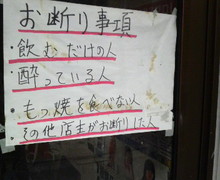 お断り事項
・飲むだけの人
・酔っている人
・もつ焼を食べない人
その他店主がお断りした人